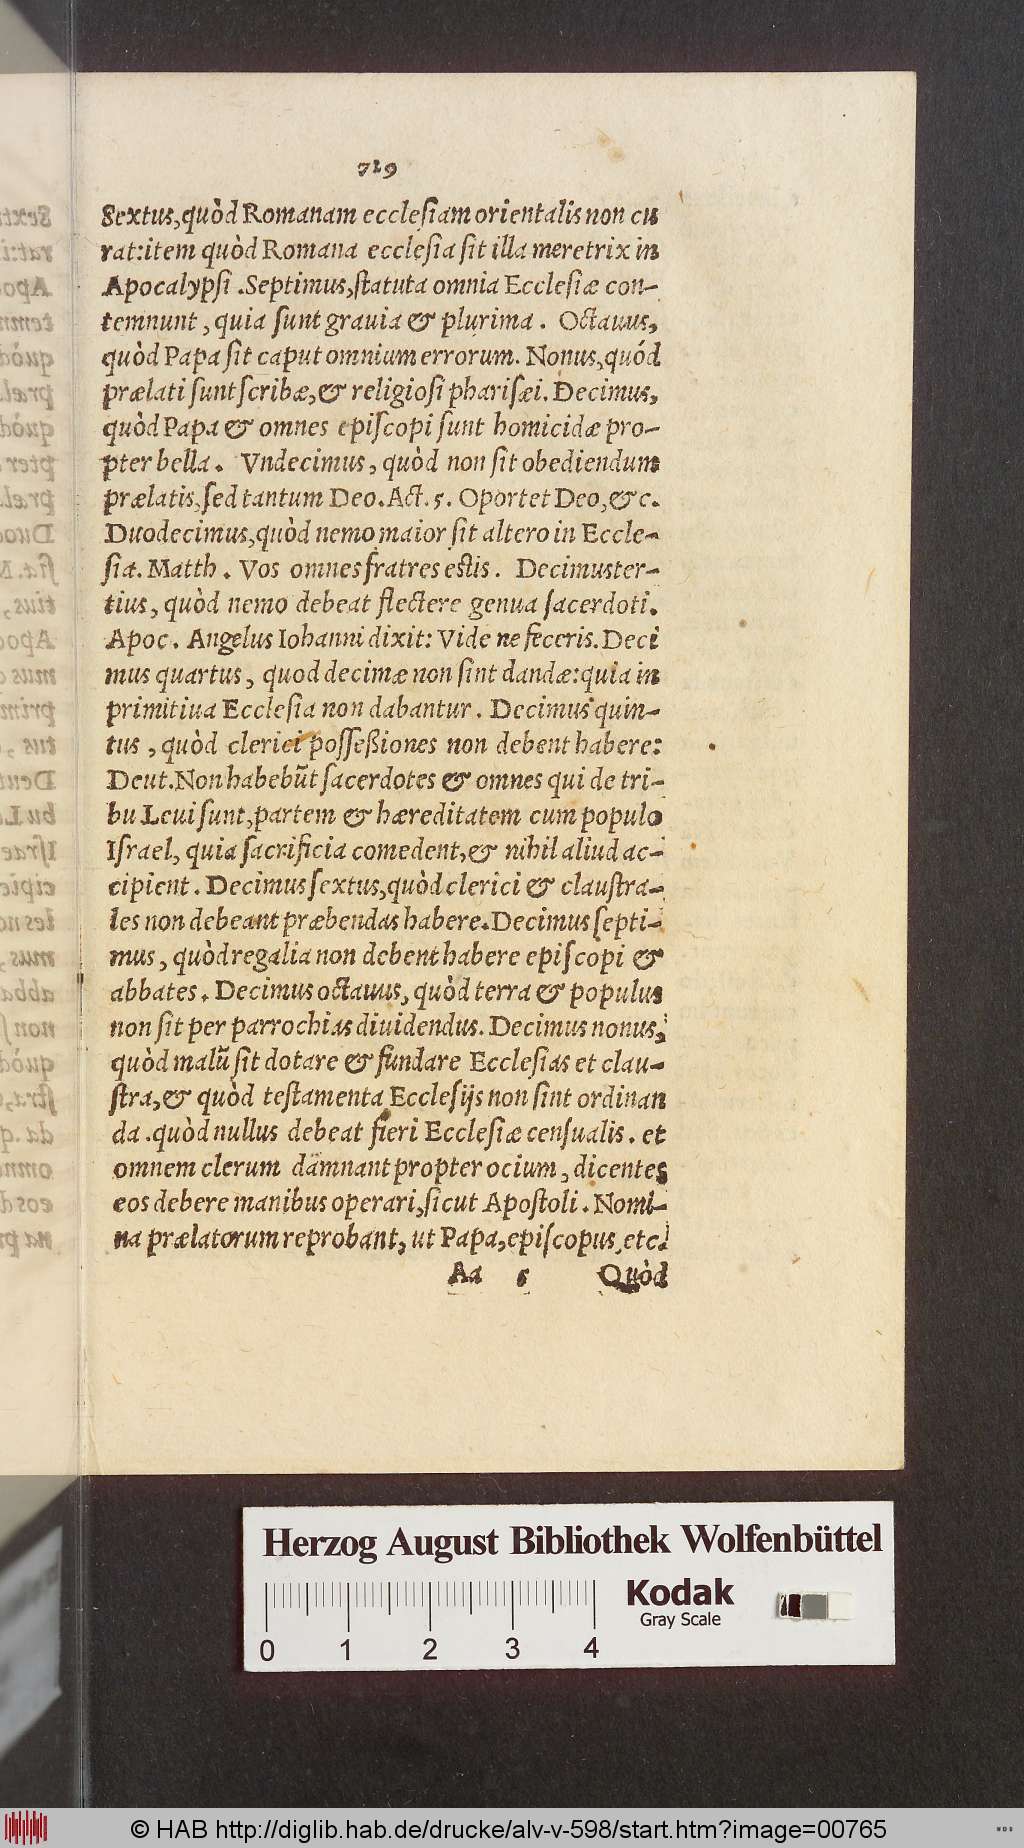 719
Sextus, quòd Romanam ecclesiam orientalis non cu
rat: item quòd Romana ecclesia sit illa meretrix in
Apocalypsi. Septimus, statuta omnia Ecclesiæ con-
temnunt, quia sunt grauia & plurima. Octauus,
quòd Papa sit caput omnium errorum. Nonus, quód
prælati sunt scribæ, & religiosi pharisæi. Decimus,
quòd Papa & omnes episcopi sunt homicidæ pro-
pter bella. Vndecimus, quòd non sit obediendum
prælatis, sed tantum Deo. Act. 5. Oportet Deo, & c.
Duodecimus, quòd nemo maior sit altero in Eccle-
sia. Matth. Vos omnes fratres estis. Decimuster-
tius, quòd nemo debeat flectere genua sacerdoti.
Apoc. Angelus Iohanni dixit: Vide ne feceris. Deci
mus quartus, quod decimæ non sint dandæ: quia in
primitiua Ecclesia non dabantur. Decimus quin-
tus, quòd clerici possessiones non debent habere:
Deut. Non habebūt sacerdotes & omnes qui de tri-
bu Leui sunt, partem & hæreditatem cum populo
Israel, quia sacrificia comedent, & nihil aliud ac-
cipient. Decimus sextus, quòd clerici & claustra-
les non debeant præbendas habere. Decimus septi-
mus, quòd regalia non debent habere episcopi &
abbates. Decimus octauus, quòd terra & populus
non sit per parrochias diuidendus. Decimus nonus,
quòd malū sit dotare & fundare Ecclesias et clau-
stra, & quòd testamenta Ecclesijs non sint ordinan
da. quòd nullus debeat fieri Ecclesiæ censualis. et
omnem clerum damnant propter ocium, dicentes
eos debere manibus operari, sicut Apostoli. Nomi-
na prælatorum reprobant, ut Papa, episcopus, etc.
Aa 5 Quòd
Herzog August Bibliothek Wolfenbüttel
Kodak
Gray Scale
0 1 2 3 4
© HAB http://diglib.hab.de/drucke/alv-v-598/start.htm?image=00765